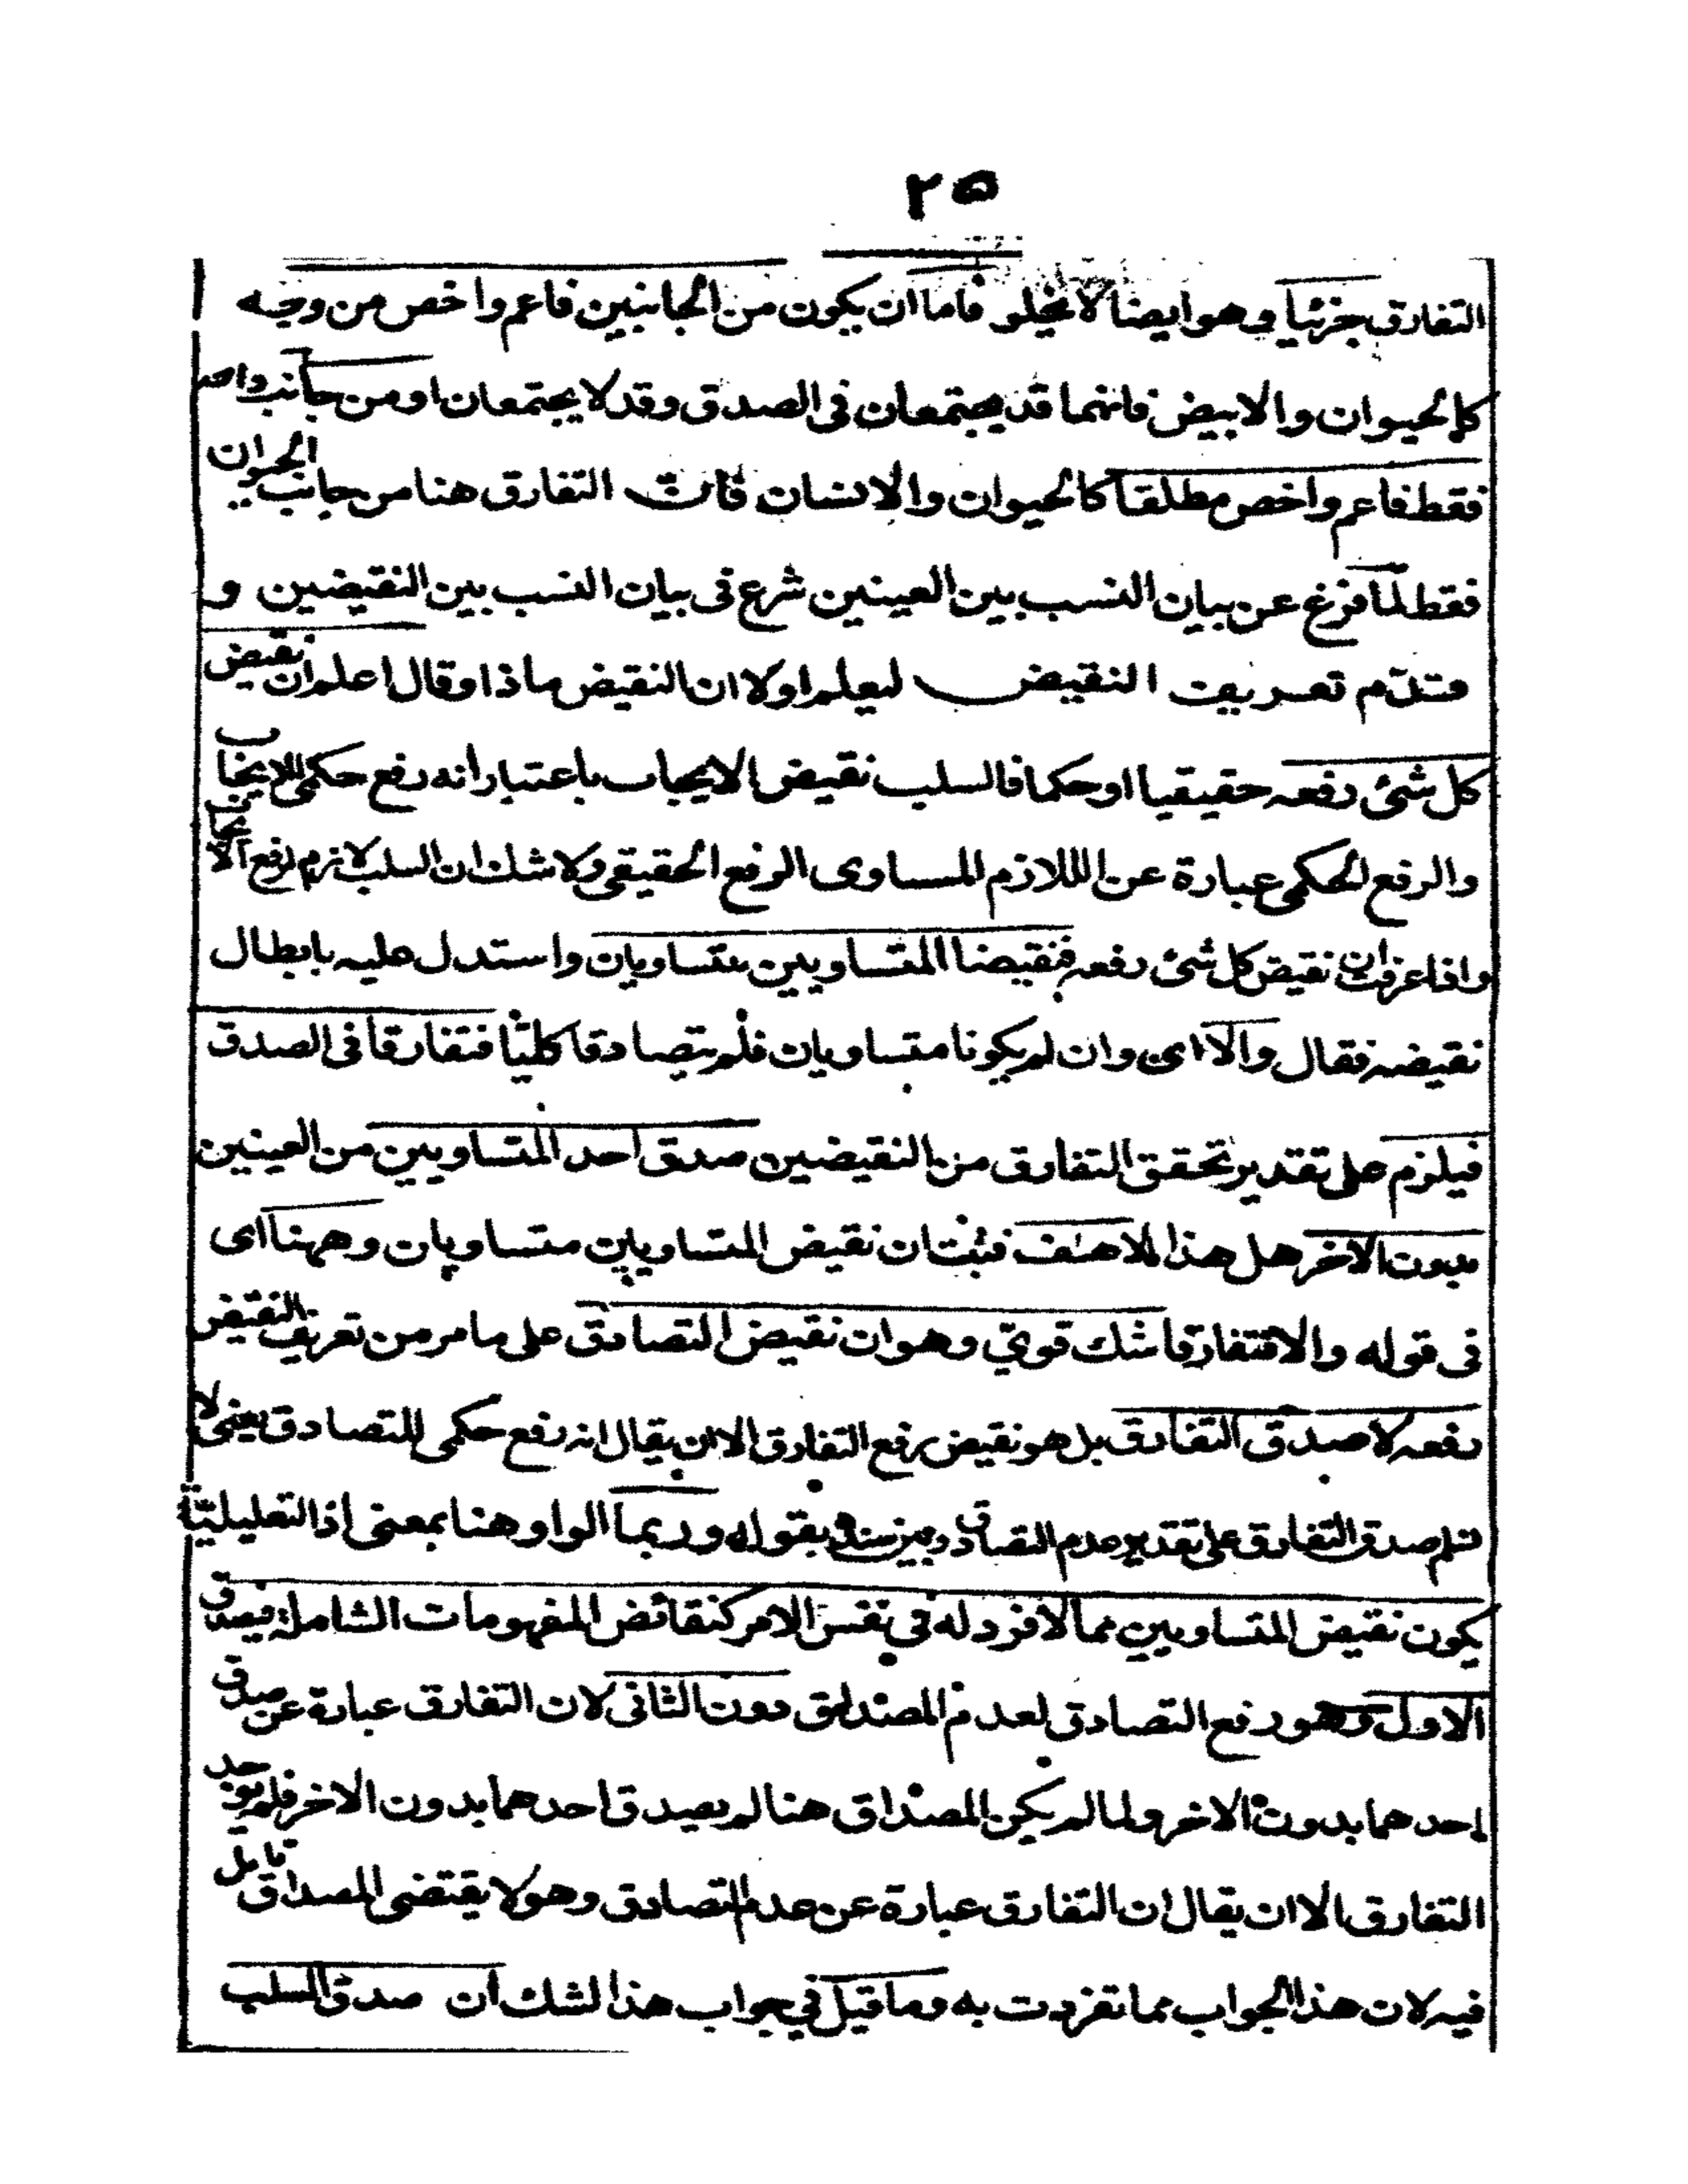 ٢٥
التفارق جزئيا وهو ايضا لا يخلو فاما ان يكون من الجانبين فاعم واخص من وجه
كالحيوان والابيض فانهما قد يجتمعان في الصدق وقد لا يجتمعان او من جانب واحد
فقط فاعم واخص مطلقا كالحيوان والانسان فان التفارق هنا من جانب الحيوان
فقط لما فرغ عن بيان النسب بين العينين شرع في بيان النسب بين النقيضين و
قدّم تعريف النقيض ليعلم اولا ان النقيض ماذا وقال اعلم ان نقيض
كل شئ رفعه حقيقيا او حكما فالسلب نقيض الايجاب باعتبار انه رفع حكمى للايجاب
والرفع الحكمى عبارة عن اللازم المساوى الرفع الحقيقى ولا شك ان السلب لازم لرفع الايجاب
واذا عرفت ان نقيض كل شئ رفعه فنقيضا المتساويين متساويان واستدل عليه بابطال
نقيضه فقال والا اى وان لم يكونا متساويان فلم يتصادقا كليّا فتفارقا فى الصدق
فيلزم على تقدير تحقق التفارق من النقيضين صدق احد المتساويين من العينين
بدون الاخر هل هذا الا هف فثبت ان نقيض المتساويين متساويان وههنا اى
فى قوله والا فتفارقا شك قوىّ وهو ان نقيض التصادق على ما مر من تعريف النقيض
رفعه لا صدق التفارق بل هو نقيض برفع التفارق الا ان يقال انه رفع حكمى للتصادق يعنى لا
نسلم صدق التفارق على تقدير عدم التصادق وبين سنده بقوله وربما الواو هنا بمعنى اذ التعليليّة
يكون نقيض المتساويين مما لا فرد له فى نفس الامر كنقائض المفهومات الشاملة فيصدق
الاول وهو رفع التصادق لعدم المصداق دون الثانى لان التفارق عبارة عن صدق
احدهما بدون الاخر ولما لم يكن المصداق هنا لم يصدق احدهما بدون الاخر فلم يوجد
التفارق الا ان يقال ان التفارق عبارة عن عدم التصادق وهو لا يقتضى المصداق تامل
فيه لان هذا الجواب مما تفردت به وما قيل في جواب هذا الشك ان صدق السلب